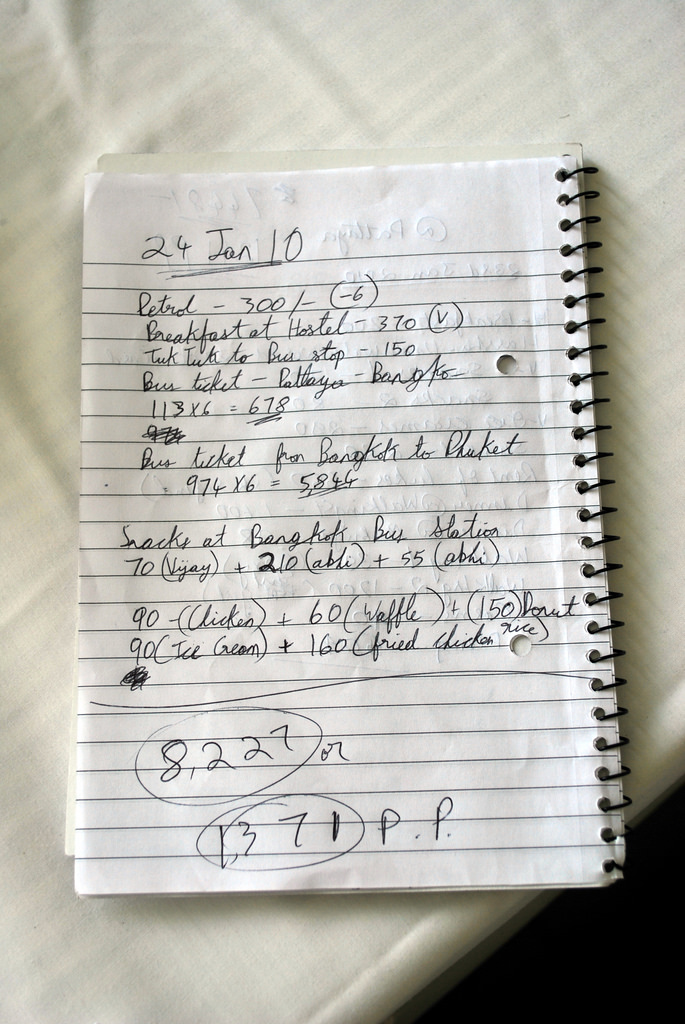 24 Jan 10
Petrol - 300/- (-6)
Breakfast at Hostel - 370 (V)
Tuk Tuk to Bus stop - 150
Bus ticket - Pattaya - Bangko
113 X 6 = 678
Bus ticket from Bangkok to Phuket
= 974 X 6 = 5844
Snacks at Bangkok Bus Station
70 (Vijay) + 210 (abhi) + 55 (abhi)
90 - (Chicken) + 60 (Waffle) + (150) Donut
90 (Ice Cream) + 160 (fried chicken rice)
8,227 or
1,371 P.P.